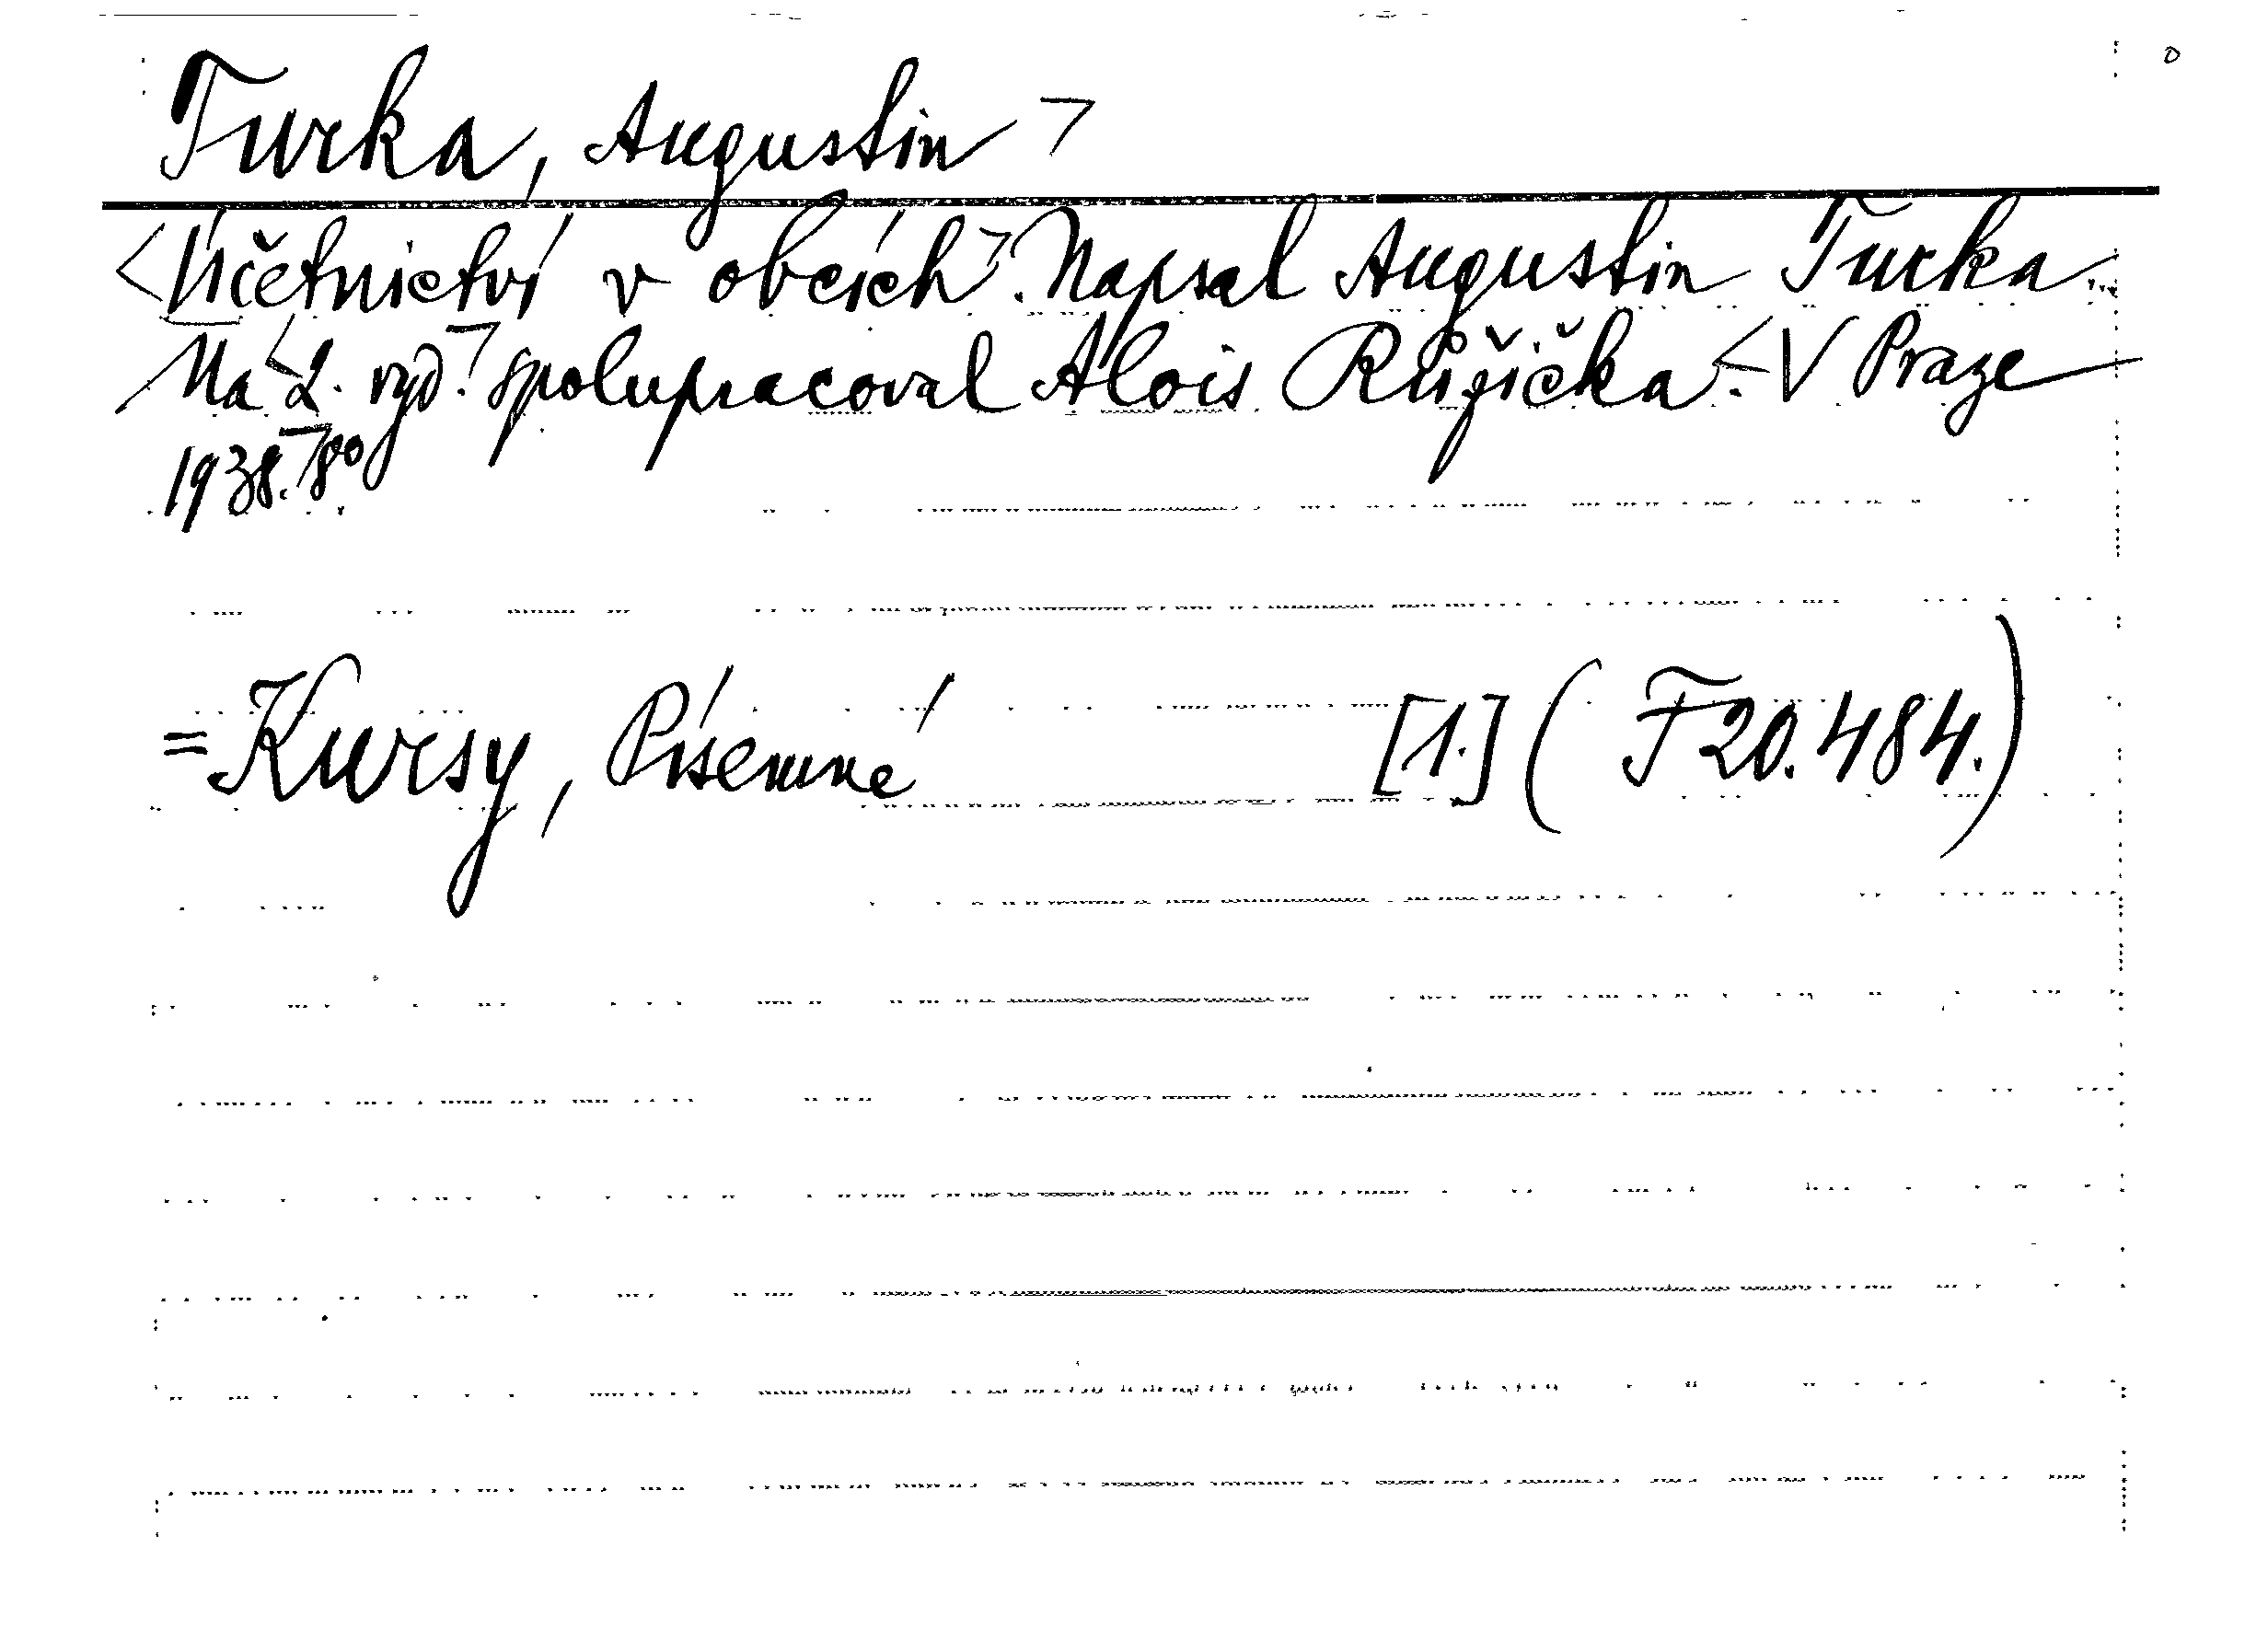 Turka, Augustin ¬
<Účetnictví v obcích¬. Napsal Augustin Turka...
Na <2. vyd.¬ spolupracoval Alois Růžička. <V Praze
1938.¬ 8°.
=Kursy, Písemné [1.] (F 20.484.)